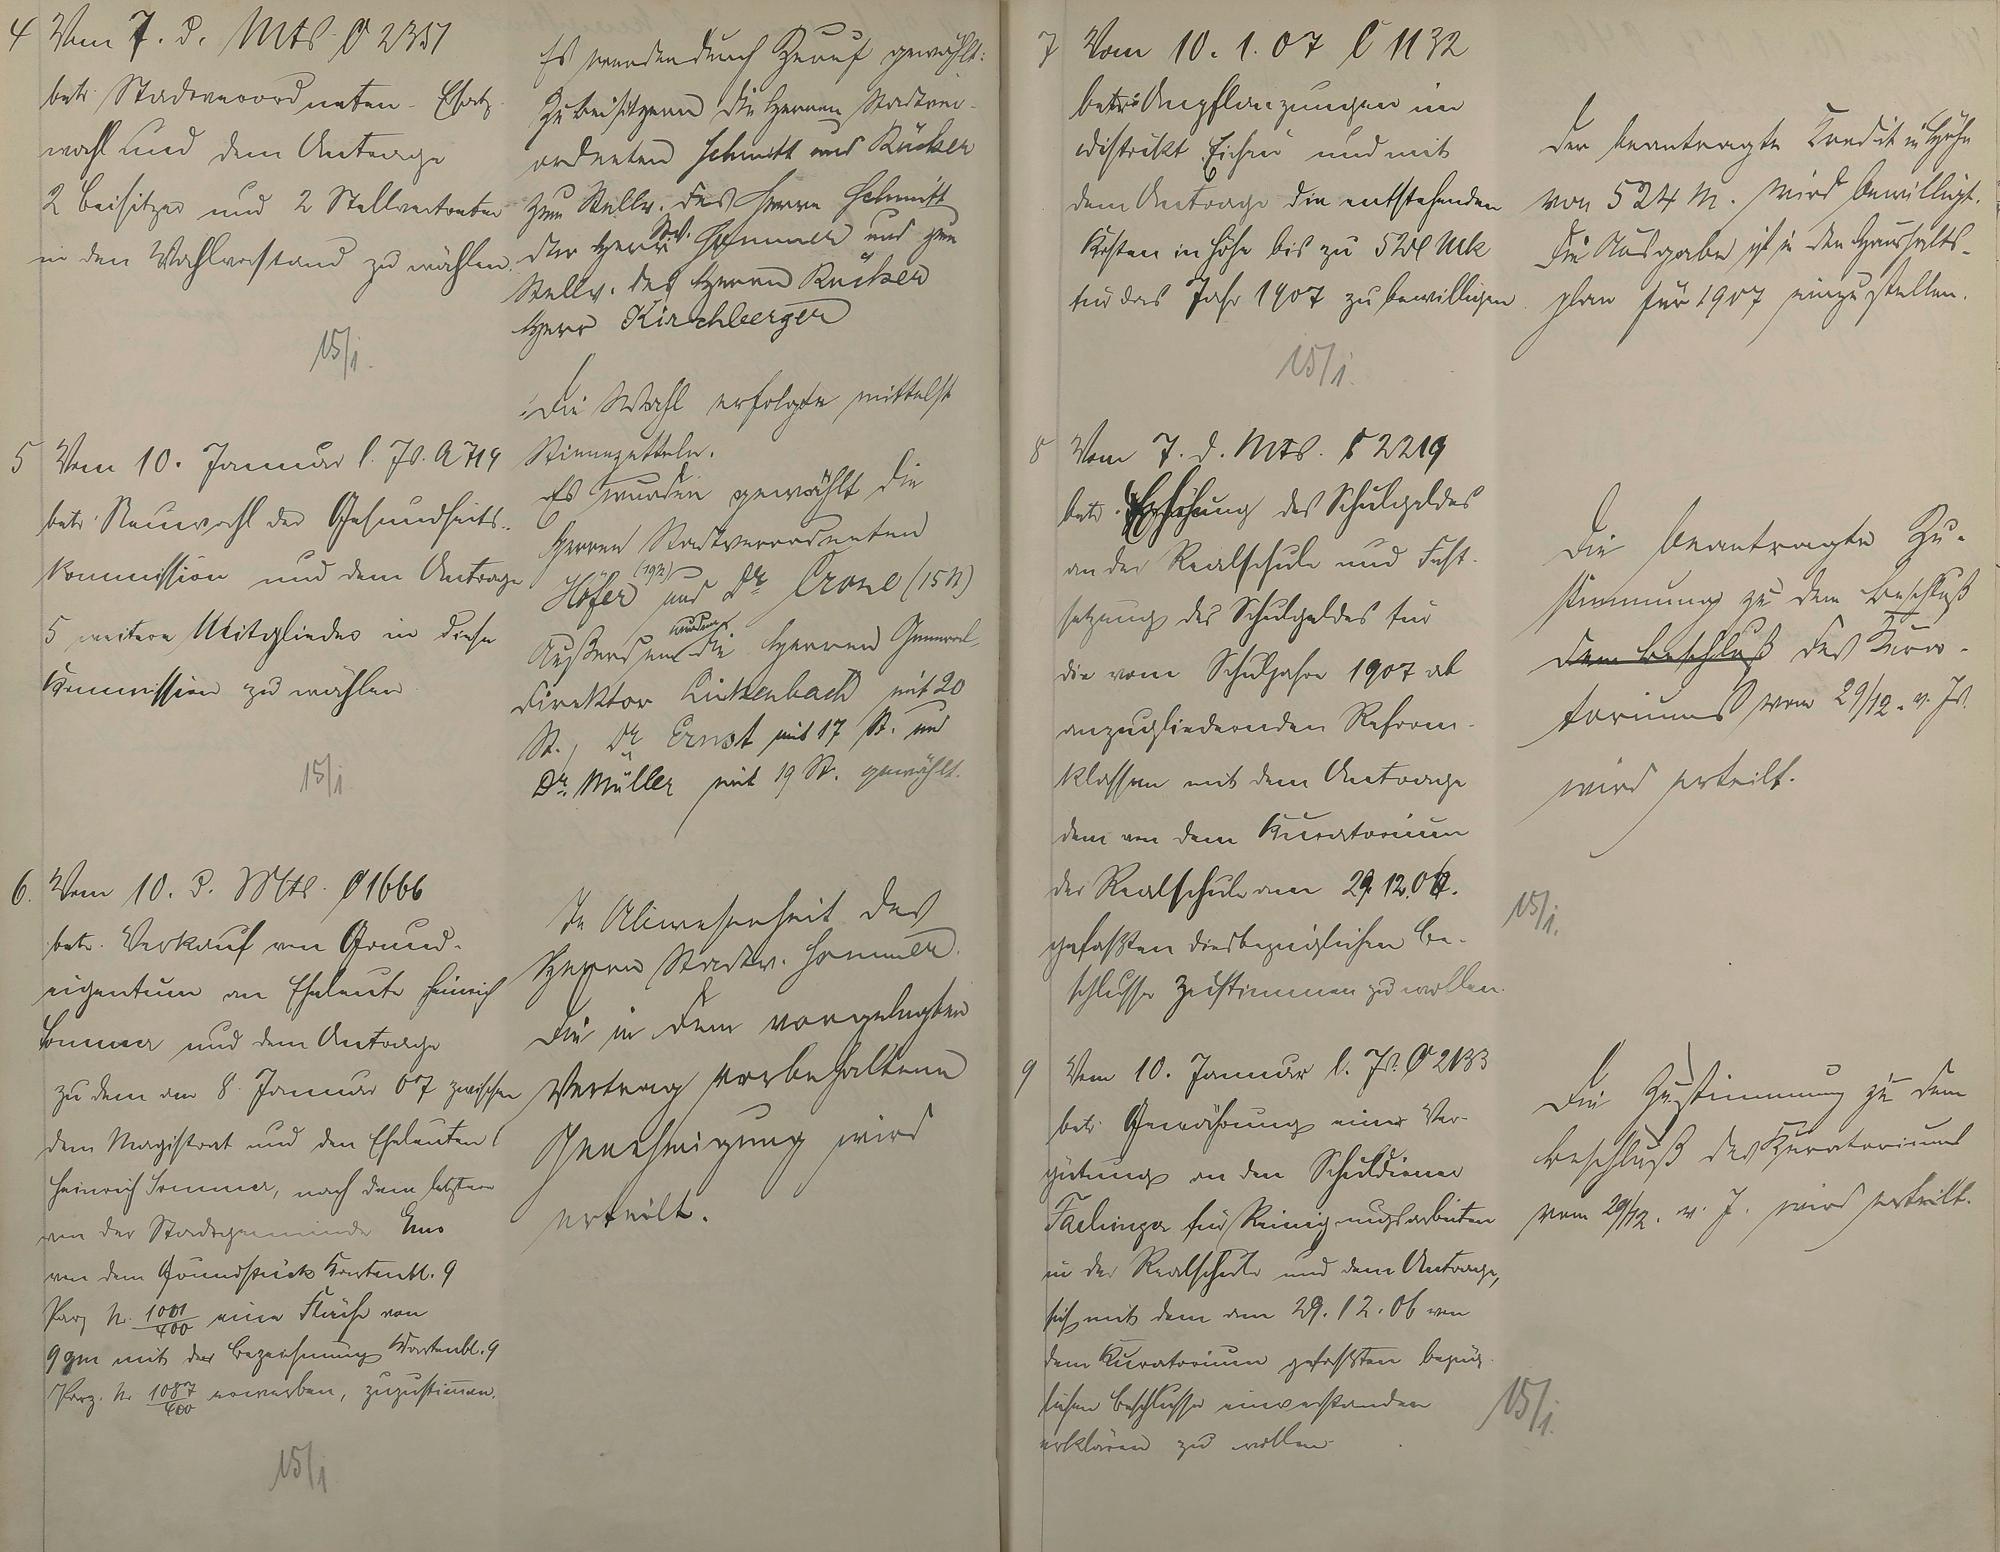 4 Vom 7. d. Mts. O 2351
betr. Stadtverordneten-Ersatz-
wahl und dem Antrage
2 Beisitzer und 2 Stellvertreter
in den Wahlvorstand zu wählen.
15/1.
Es werden durch Zuruf gewählt:
Zu Beisitzern die Herren Stadtver-
ordneten Schmitt und Rücker
zum Stellv. des Herrn Schmitt
der Herr Stv. Sommer und zum
Stellv. des Herrn Rücker
Herr Kirchberger
5 Vom 10. Januar l. Js. A 719
betr. Neuwahl der Gesundheits-
kommission und dem Antrage
5 weitere Mitglieder in diese
Kommission zu wählen
15/1
Die Wahl erfolgte mittelst
Stimmzetteln.
Es wurden gewählt die
Herren Stadtverordneten
Höfer (19 St) und Dr. Crone (15 St)
Außerdem wurden die Herren General-
direktor Linkenbach mit 20
St., Dr. Ernst mit 17 St. und
Dr. Müller mit 19 St. gewählt.
6. Vom 10. d. Mts. O 1666
betr. Verkauf von Grund-
eigentum an Eheleute Heinrich
Sommer und dem Antrage
zu dem am 8. Januar 07 zwischen
dem Magistrat und den Eheleuten
Heinrich Sommer, nach dem letztere
von der Stadtgemeinde Ems
von dem Grundstück Kartenbl. 9
Parz. Nr. 1001/400 eine Fläche von
9 qm mit der Bezeichnung Kartenbl. 9
Parz. Nr. 1087/400 erwerben, zuzustimmen.
15/1
In Abwesenheit des
Herrn Stadtv. Sommer.
Die in dem vorgelegten
Vertrag vorbehaltene
Genehmigung wird
erteilt.
7 Vom 10. 1. 07 C 1132
betr. Anpflanzungen im
Distrikt und mit
dem Antrage die entstehenden
Kosten in Höhe bis zu 524 Mk
für das Jahr 1907 zu bewilligen
15/1.
Der beantragte Kredit in Höhe
von 524 M. wird bewilligt.
Die Ausgabe ist in den Haushalts-
plan für 1907 einzustellen.
8 Vom 7. d. Mts. C 2219
betr. Erhöhung des Schulgeldes
an der Realschule und Fest-
setzung des Schulgeldes für
die vom Schuljahre 1907 ab
anzugliedernden Reform-
klassen mit dem Antrage
dem von dem Kuratorium
der Realschule am 29. 12. 06.
gefaßten diesbezüglichen Be-
schlusse zustimmen zu wollen.
15/1.
Die beantragte Zu-
stimmung zu dem Beschluß
dem Beschluß des Kura-
toriums vom 29/12. v. Js.
wird erteilt.
9 Vom 10. Januar l. Js. O 2133
betr. Gewährung einer Ver-
gütung an den Schuldiener
Fachinger für Reinigungsarbeiten
in der Realschule und dem Antrage,
sich mit dem am 29. 12. 06 von
dem Kuratorium gefaßten bezüg-
lichen Beschlusse einverstanden
erklären zu wollen
15/1.
Die Zustimmung zu dem
Beschluß des Kuratoriums
vom 29/12. v. J. wird erteilt.